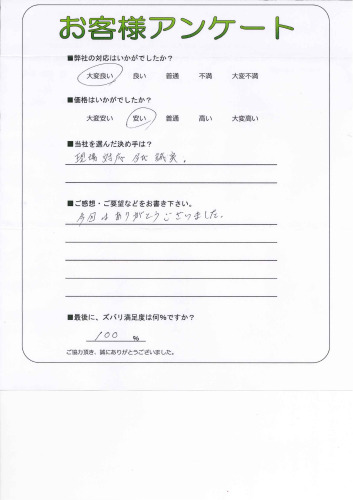 お客様アンケート
■弊社の対応はいかがでしたか？
大変良い 良い 普通 不満 大変不満
■価格はいかがでしたか？
大変安い 安い 普通 高い 大変高い
■当社を選んだ決め手は？
現場 誠実。
■ご感想・ご要望などをお書き下さい。
今回はありがとうございました。
■最後に、ズバリ満足度は何％ですか？
100 %
ご協力頂き、誠にありがとうございました。